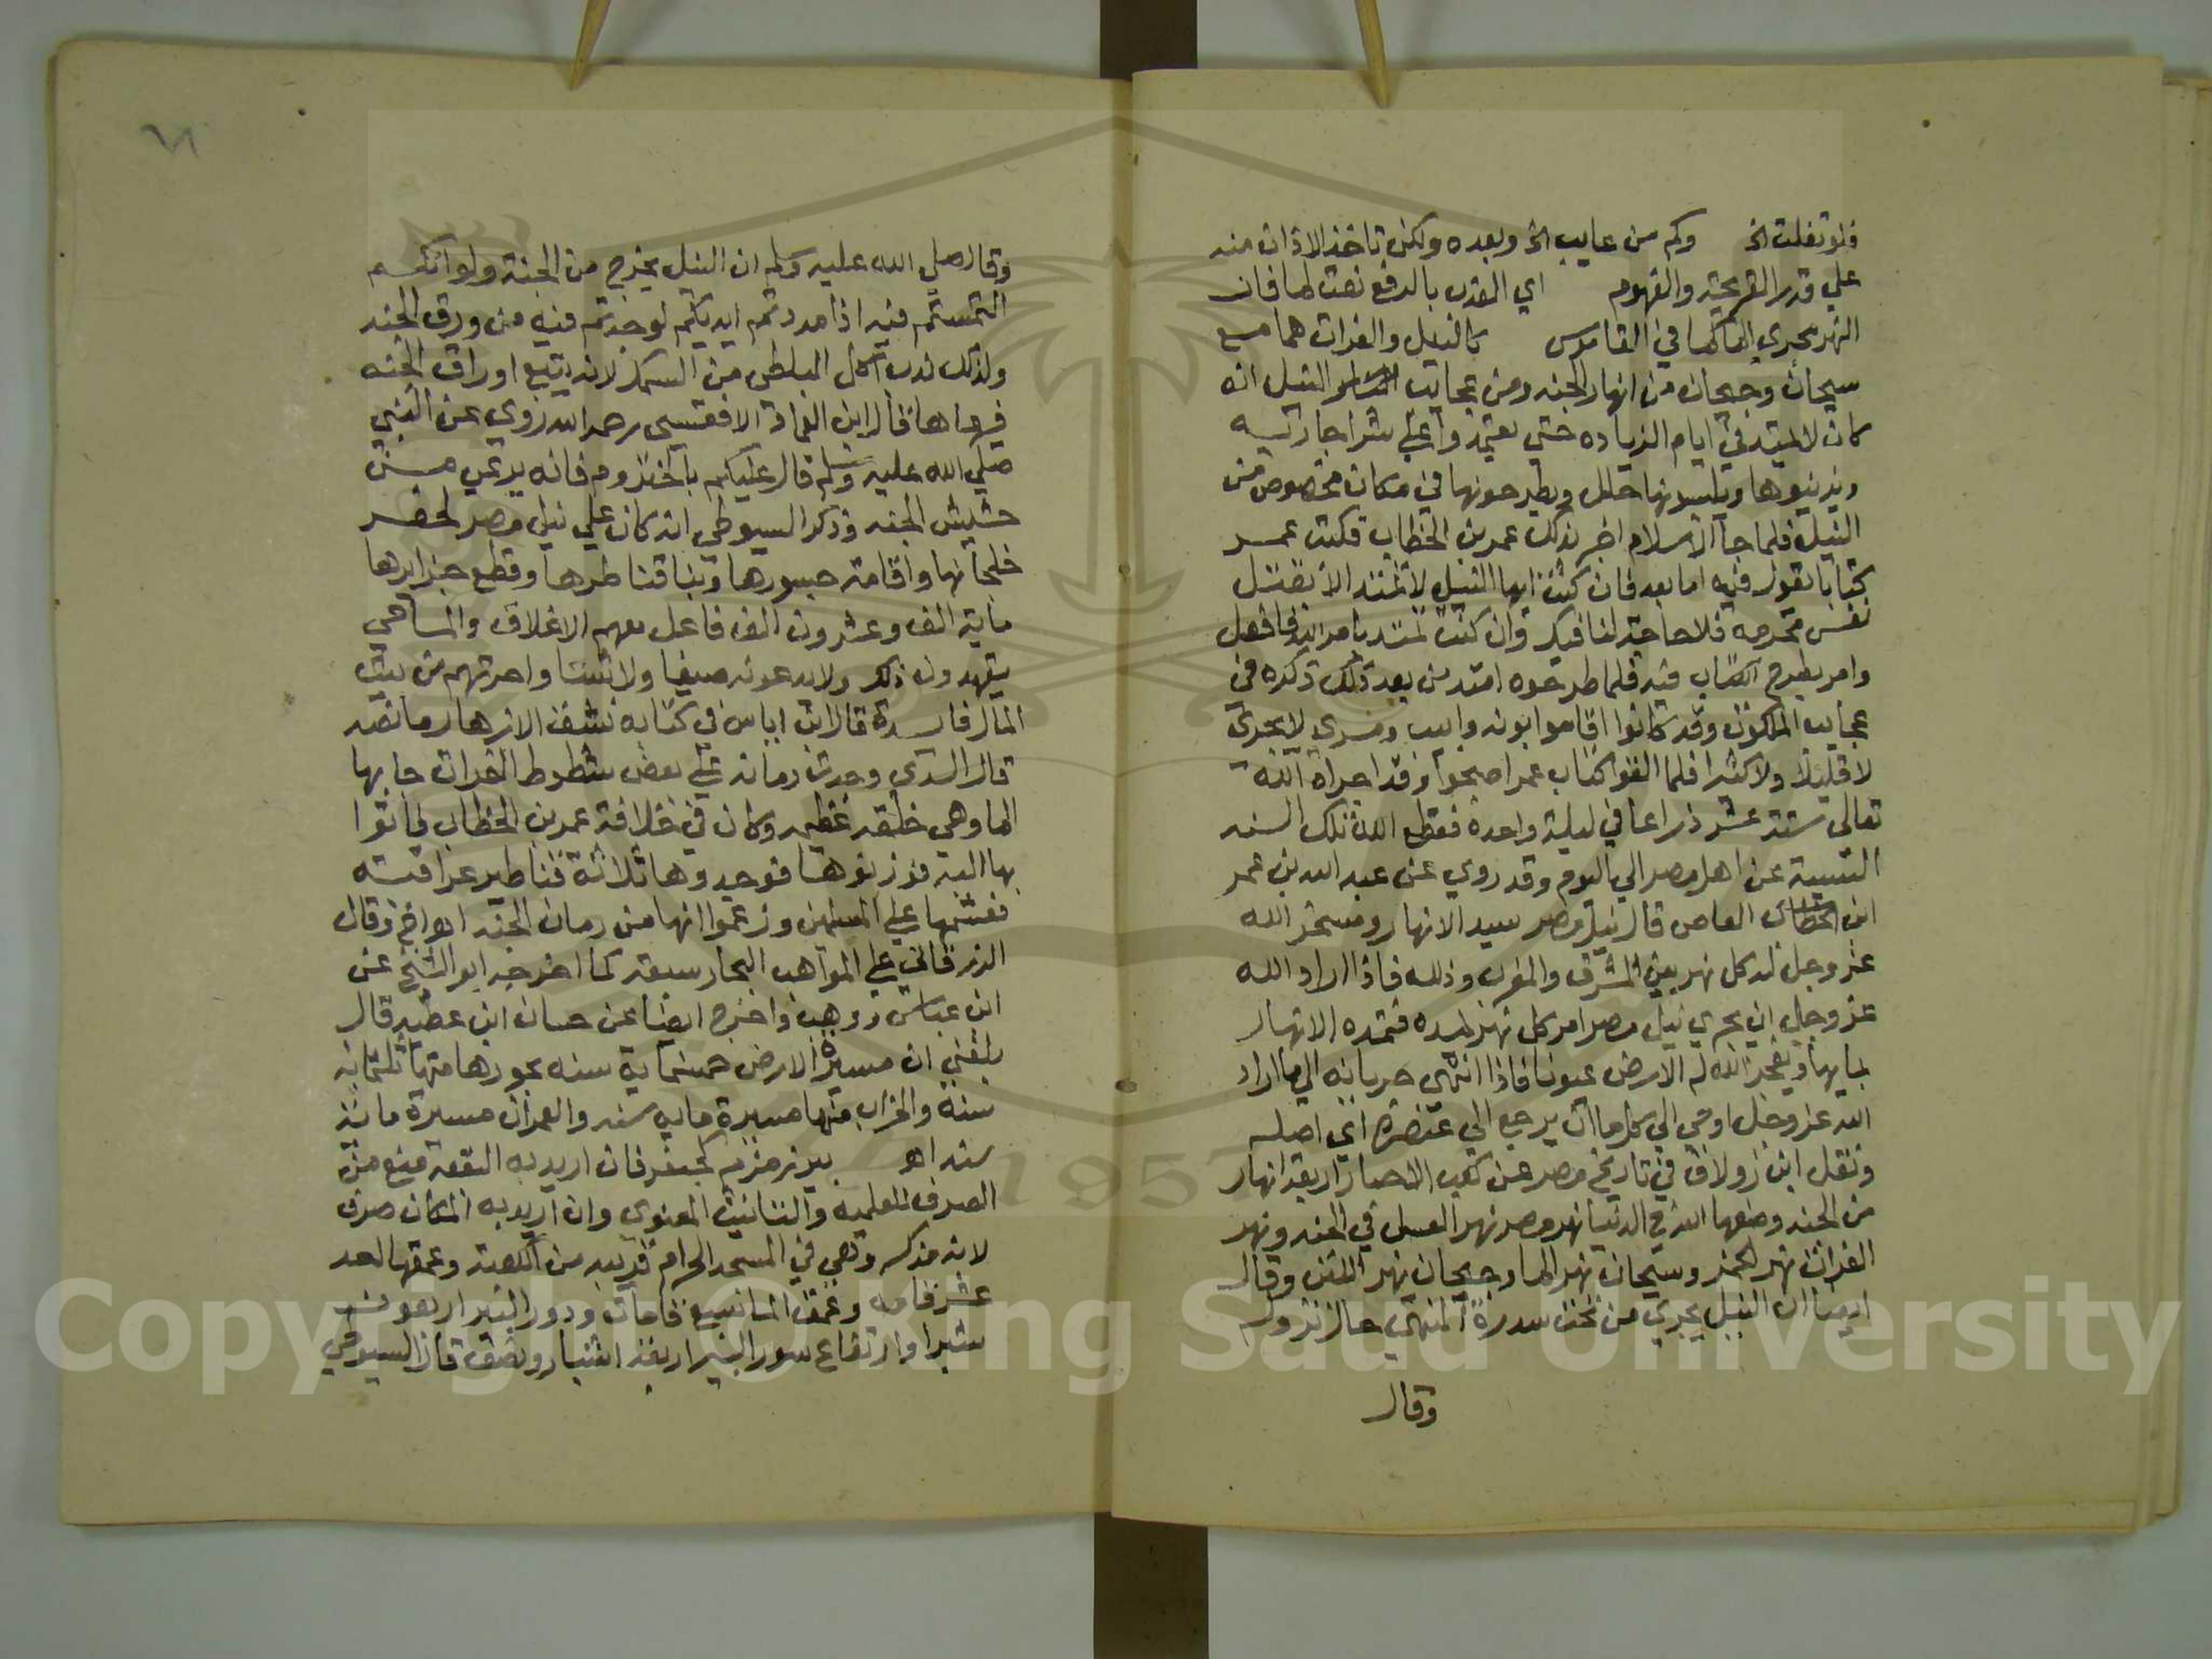 فلو تفلت الخ وكم من عايب الخ وبعده ولكن تاخذ الاذان منه
علي قدر القريحة والفهوم اي العذب بالرفع نعت لها فان
النهر مجري الماء كما في القاموس كالنيل والفرات هما مع
سيحان وجيحان من انهار الجنه ومن عجايب النيل انه
كان لا يمتد في ايام الزياده حتي يعتمدوا علي بنر
ويزينوها ويلبسونها حلل ويطرحونها في مكان مخصوص من
النيل فلما جا الاسلام اخبر بذلك عمر بن الخطاب فكتب عمر
كتابا يقول فيه اما بعد فان كنت ايها النيل لا تمتد الا بقتل
نفس محرمه فلا حاجة لنا فيك وان كنت تمتد بامر الله فافعل
وامر بطرح الكتاب فيه فلما طرحوه امتد من بعد ذلك ذكره في
عجايب الملكوت وقد كانوا اقاموا بونه وابيب ومسري لا يجري
لا قليلا ولا كثيرا فلما القوا كتاب عمر اصبحوا وقد اجراه الله
تعالي ستة عشر ذراعا في ليلة واحدة فقطع الله تلك السنه
السيية عن اهل مصر الي اليوم وقد روي عن عبد الله بن عمر
ابن العاص قال نيل مصر سيد الانهار وسخر الله
عز وجل له كل نهر بين المشرق والمغرب وذلله فاذا اراد الله
عز وجل ان يجري نيل مصر امر كل نهر يمده فتمده الانهار
بمايها ويفجر الله له الارض عيونا فاذا انتهي جريانه الي ما اراد
الله عز وجل اوحي الي كل ماء ان يرجع الي عنصره اي اصله
ونقل ابن زولاق في تاريخ مصر عن كعب الاحبار اربعة انهار
من الجنه وضعها الله في الدنيا نهر مصر نهر العسل في الجنه ونهر
الفرات نهر الخمر وسيحان نهر الماء وجيحان نهر اللبن وقال
ايضا ان النيل يجري من تحت سدرة المنتهي حال نزوله
وقال
٦١
وقال صلي الله عليه وسلم ان النيل يخرج من الجنة ولو انكم
التمستم فيه اذا مددتم ايديكم لوجدتم فيه من ورق الجنه
ولذلك ندب اكل البلطي من السمك لانه يتبع اوراق الجنه
فيرعاها قال ابن العماد الاقفهسي رحمه الله روي عن النبي
صلي الله عليه وسلم قال عليكم فانه يرعي من
حشيش الجنه وذكر السيوطي انه كان علي نيل مصر لحفر
خلجانها واقامة جسورها وبنا قناطرها وقطع جزايرها
ماية الف وعشرون الف فاعل معهم والمساحي
يتعهدون ذلك ولا يدعونه صيفا ولا شتا واجرتهم من بيت
المال فايدة قال ابن اياس في كتابه نشق الازهار ما نصه
قال السدي وجدت رمانه علي بعض شطوط الفرات جا بها
الما وهي خلقه عظيمه وكان في خلافة عمر بن الخطاب فاتوا
بها اليه فوزنوها فوجدوها ثلاثة قناطير عراقيه
فقسمها علي المسلمين وزعموا انها من رمان الجنه اه وقال
الزرقاني علي المواهب البحار سبعة كما اخرجه ابو الشيخ عن
ابن عباس ووهب واخرج ايضا عن حسان ابن عطيه قال
بلغني ان مسيرة الارض خمسماية سنه بحورها منها ثلثماية
سنة والخراب منها مسيرة ماية سنه والعمران مسيرة ماية
سنه اه بير زمزم كجعفر فان اريد به البقعة منع من
الصرف للعلميه والتانيث المعنوي وان اريد به المكان صرف
لانه مذكر وهي في المسجد الحرام قريبه من الكعبة وعمقها احد
عشر قامه وعمق الما سبع قامات ودور البير اربعون
شبرا وارتفاع سور البير اربعة اشبار ونصف قال السيوطي
Copyright © King Saud University
1957